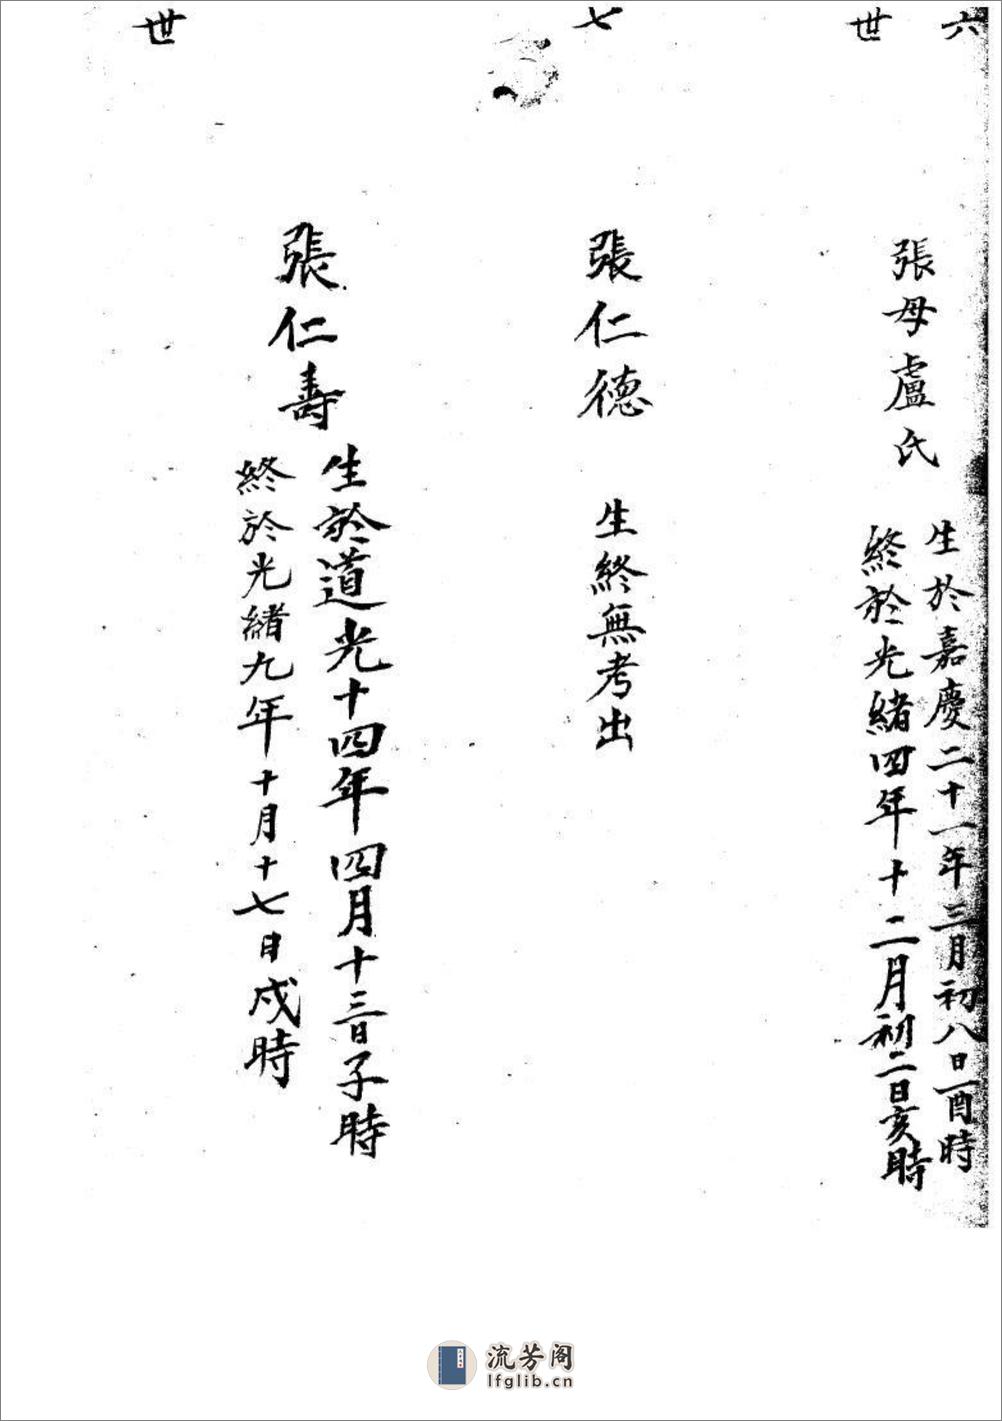 六世
張母盧氏
生於嘉慶二十一年三月初八日酉時
終於光緒四年十二月初二日亥時
七世
張仁德
生終無考出
張仁壽
生於道光十四年四月十三日子時
終於光緒九年十月十七日戍時
流芳阁
lfglib.cn